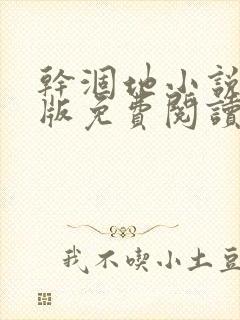 幹涸地小說
版免費閱讀
我不喫小土豆